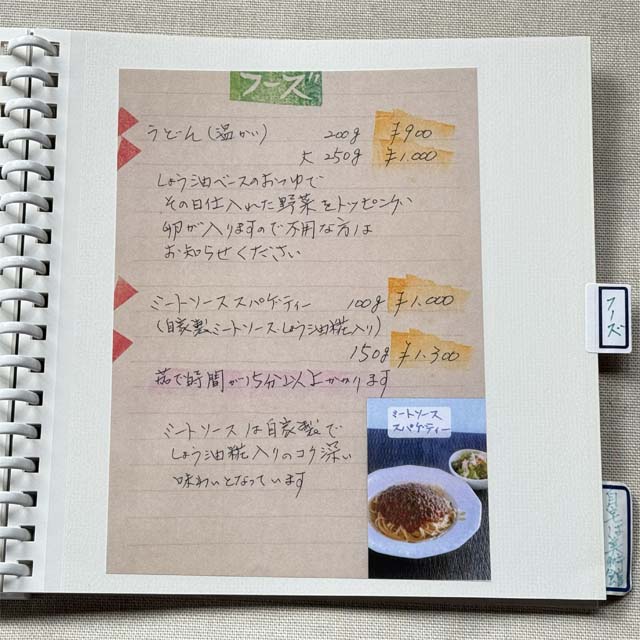 フーズ
うどん(温かい) 200g ¥900
大 250g ¥1.000
しょう油ベースのおつゆで
その日仕入れた野菜をトッピング、
卵が入りますので不用な方は
お知らせください
ミートソーススパゲティー 100g ¥1.000
(自家製ミートソースしょう油糀入り)
150g ¥1.300
茹で時間が15分以上かかります
ミートソースは自家製で
しょう油糀入りのコク深い
味わいとなっています
ミートソース
スパゲティー
フーズ